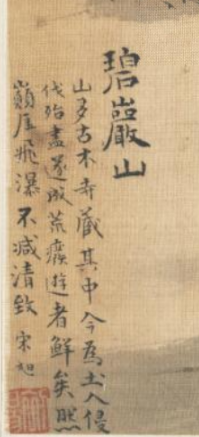 碧巖山
山多古木寺藏其中今為土人侵
伐殆盡遂成荒瘠遊者鮮矣然
巔厓飛瀑不減清致 宋旭